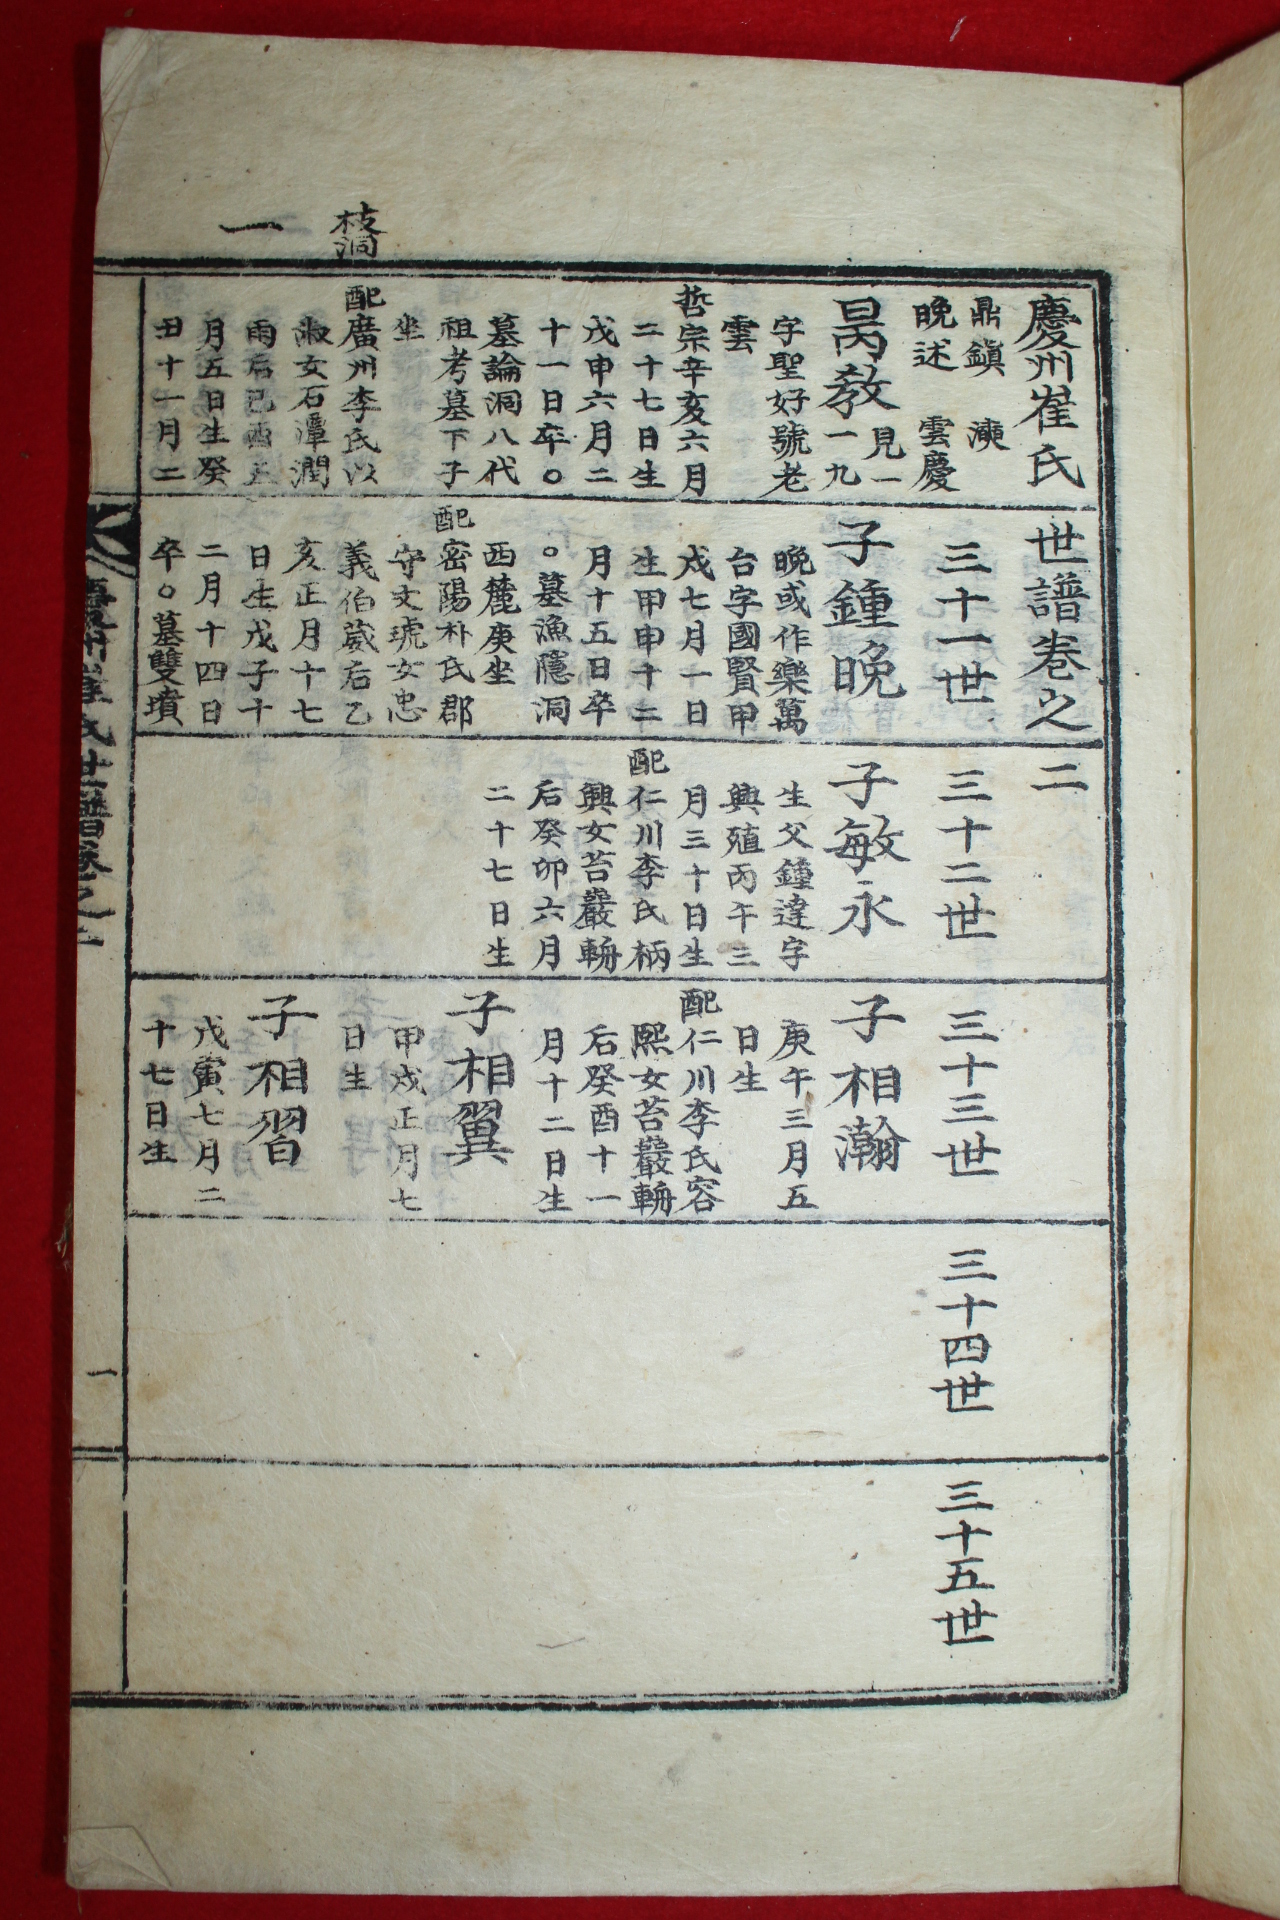 枝洞
一
慶州崔氏世譜卷之二
鼎鎭
晩述 雲慶
三十一世
三十二世
三十三世
三十四世
三十五世
昺敎 見一
一九
字聖好號老
雲
哲宗辛亥六月
二十七日生
戊申六月二
十一日卒○
墓論洞八代
祖考墓下子
坐
配廣州李氏以
淑女石潭潤
雨后己酉五
月五日生癸
丑十一月二
子鍾晩
晩或作樂萬
台字國賢甲
戌七月一日
生甲申十二
月十五日卒
○墓漁隱洞
西麓庚坐
配密陽朴氏郡
守文琥女忠
義伯葳后乙
亥正月十七
日生戊子十
二月十四日
卒○墓雙墳
子敏永
生父鍾達字
興殖丙午三
月三十日生
配仁川李氏柄
興女苔巖輈
后癸卯六月
二十七日生
子相瀚
庚午三月五
日生
配仁川李氏容
熙女苔巖輈
后癸酉十一
月十二日生
子相翼
甲戌正月七
日生
子相習
戊寅七月二
十七日生
慶州崔氏世譜卷之二
一